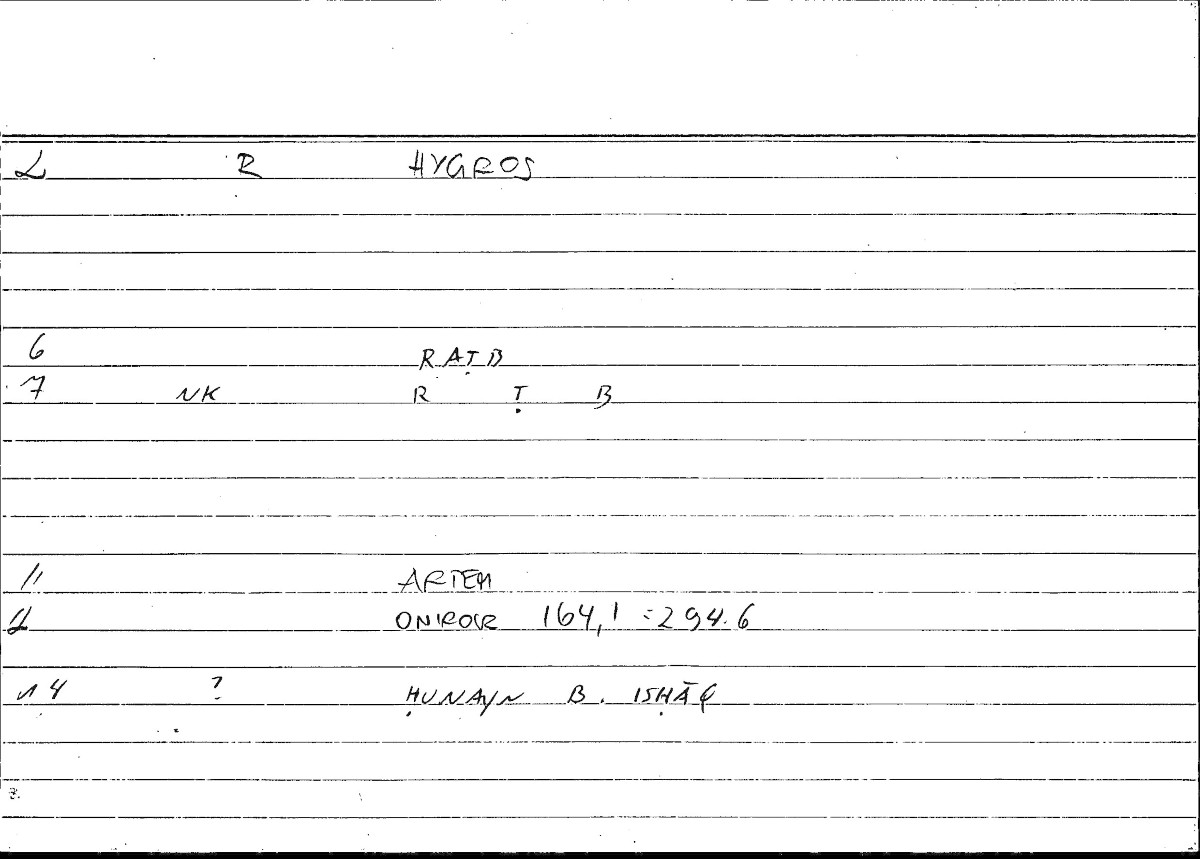 2 R HYGROS
6 RAṬB
7 NK R Ṭ B
11 ARTEM
12 ONIROCR 164,1 = 294.6
14 ? ḤUNAYN B. ISḤĀQ